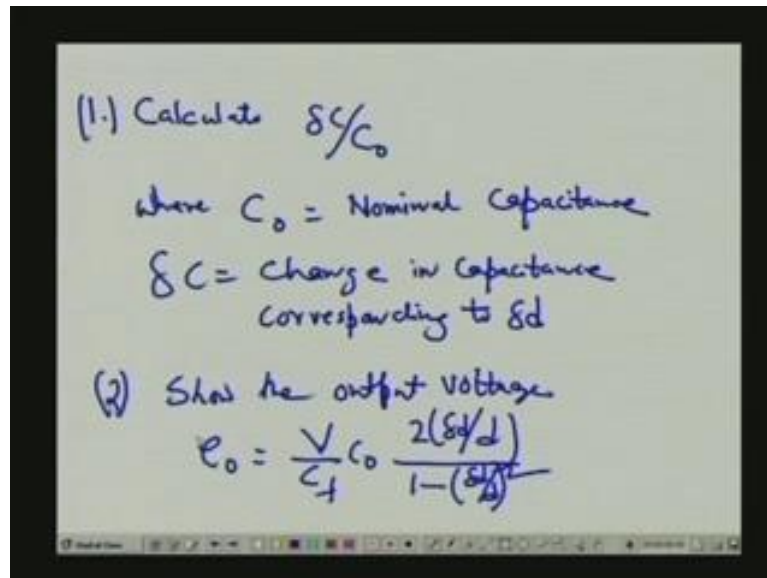 (1.) Calculate δC/C₀
where C₀ = Nominal Capacitance
δC = Change in Capacitance
corresponding to δd
(2) Show the output voltage
e₀ = V/C_f C₀ 2(δd/d)/1-(δd/d)²